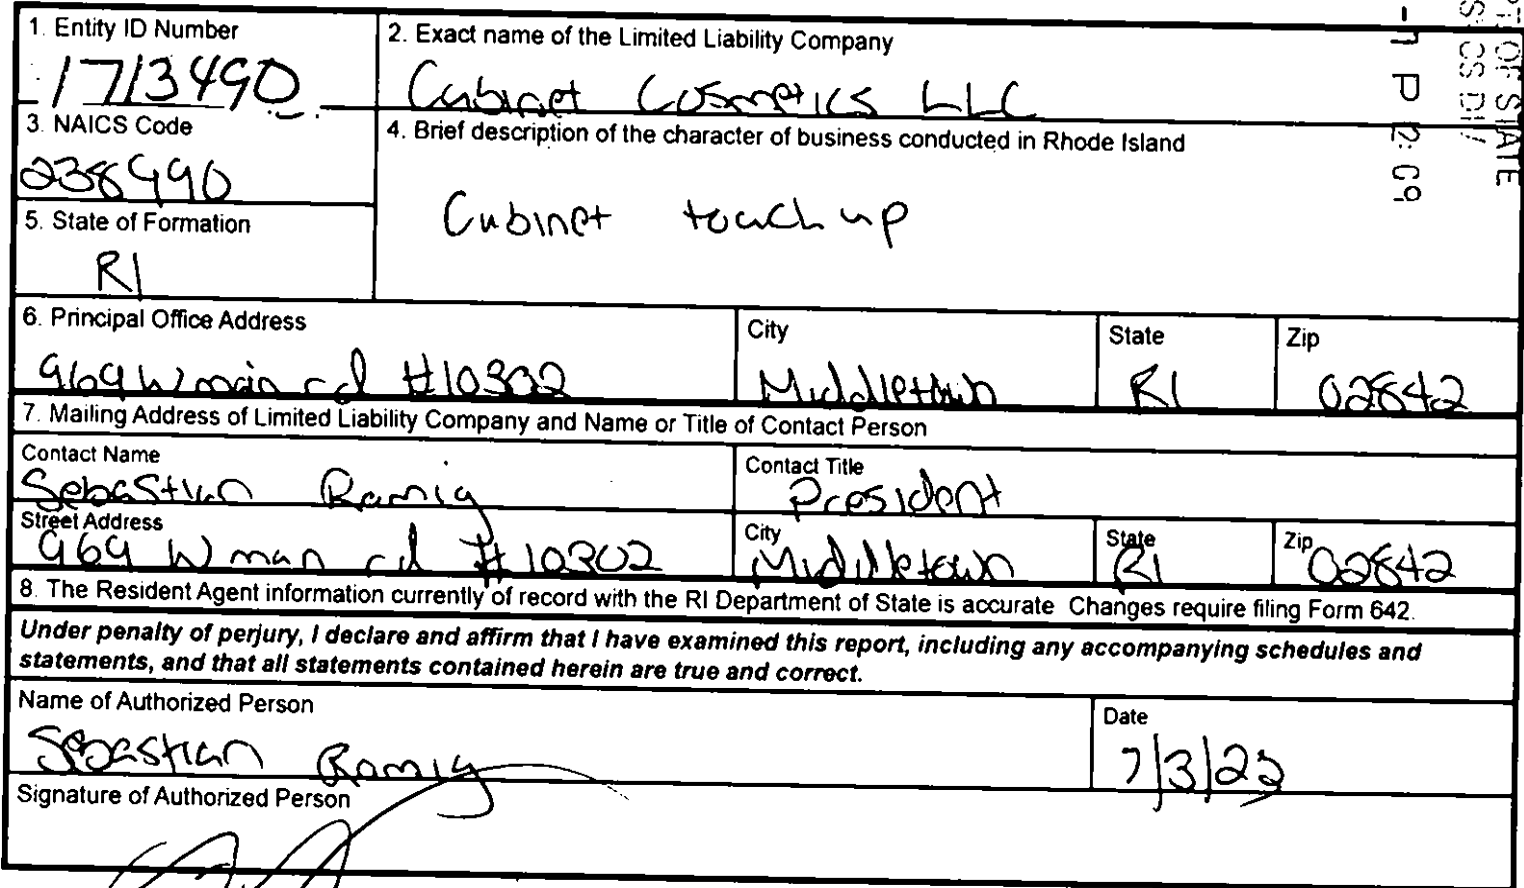 1. Entity ID Number
1713490
2. Exact name of the Limited Liability Company
Cabinet Cosmetics LLC
3. NAICS Code
238990
4. Brief description of the character of business conducted in Rhode Island
Cabinet touch up
5. State of Formation
RI
6. Principal Office Address
969 W main rd #10302
City
Middletown
State
RI
Zip
02842
7. Mailing Address of Limited Liability Company and Name or Title of Contact Person
Contact Name
Sebastian Ramig
Contact Title
President
Street Address
969 W man rd #10302
City
Middletown
State
RI
Zip
02842
8. The Resident Agent information currently of record with the RI Department of State is accurate Changes require filing Form 642.
Under penalty of perjury, I declare and affirm that I have examined this report, including any accompanying schedules and
statements, and that all statements contained herein are true and correct.
Name of Authorized Person
Sebastian Ramig
Date
7/3/23
Signature of Authorized Person
OF STATE
P 2:09